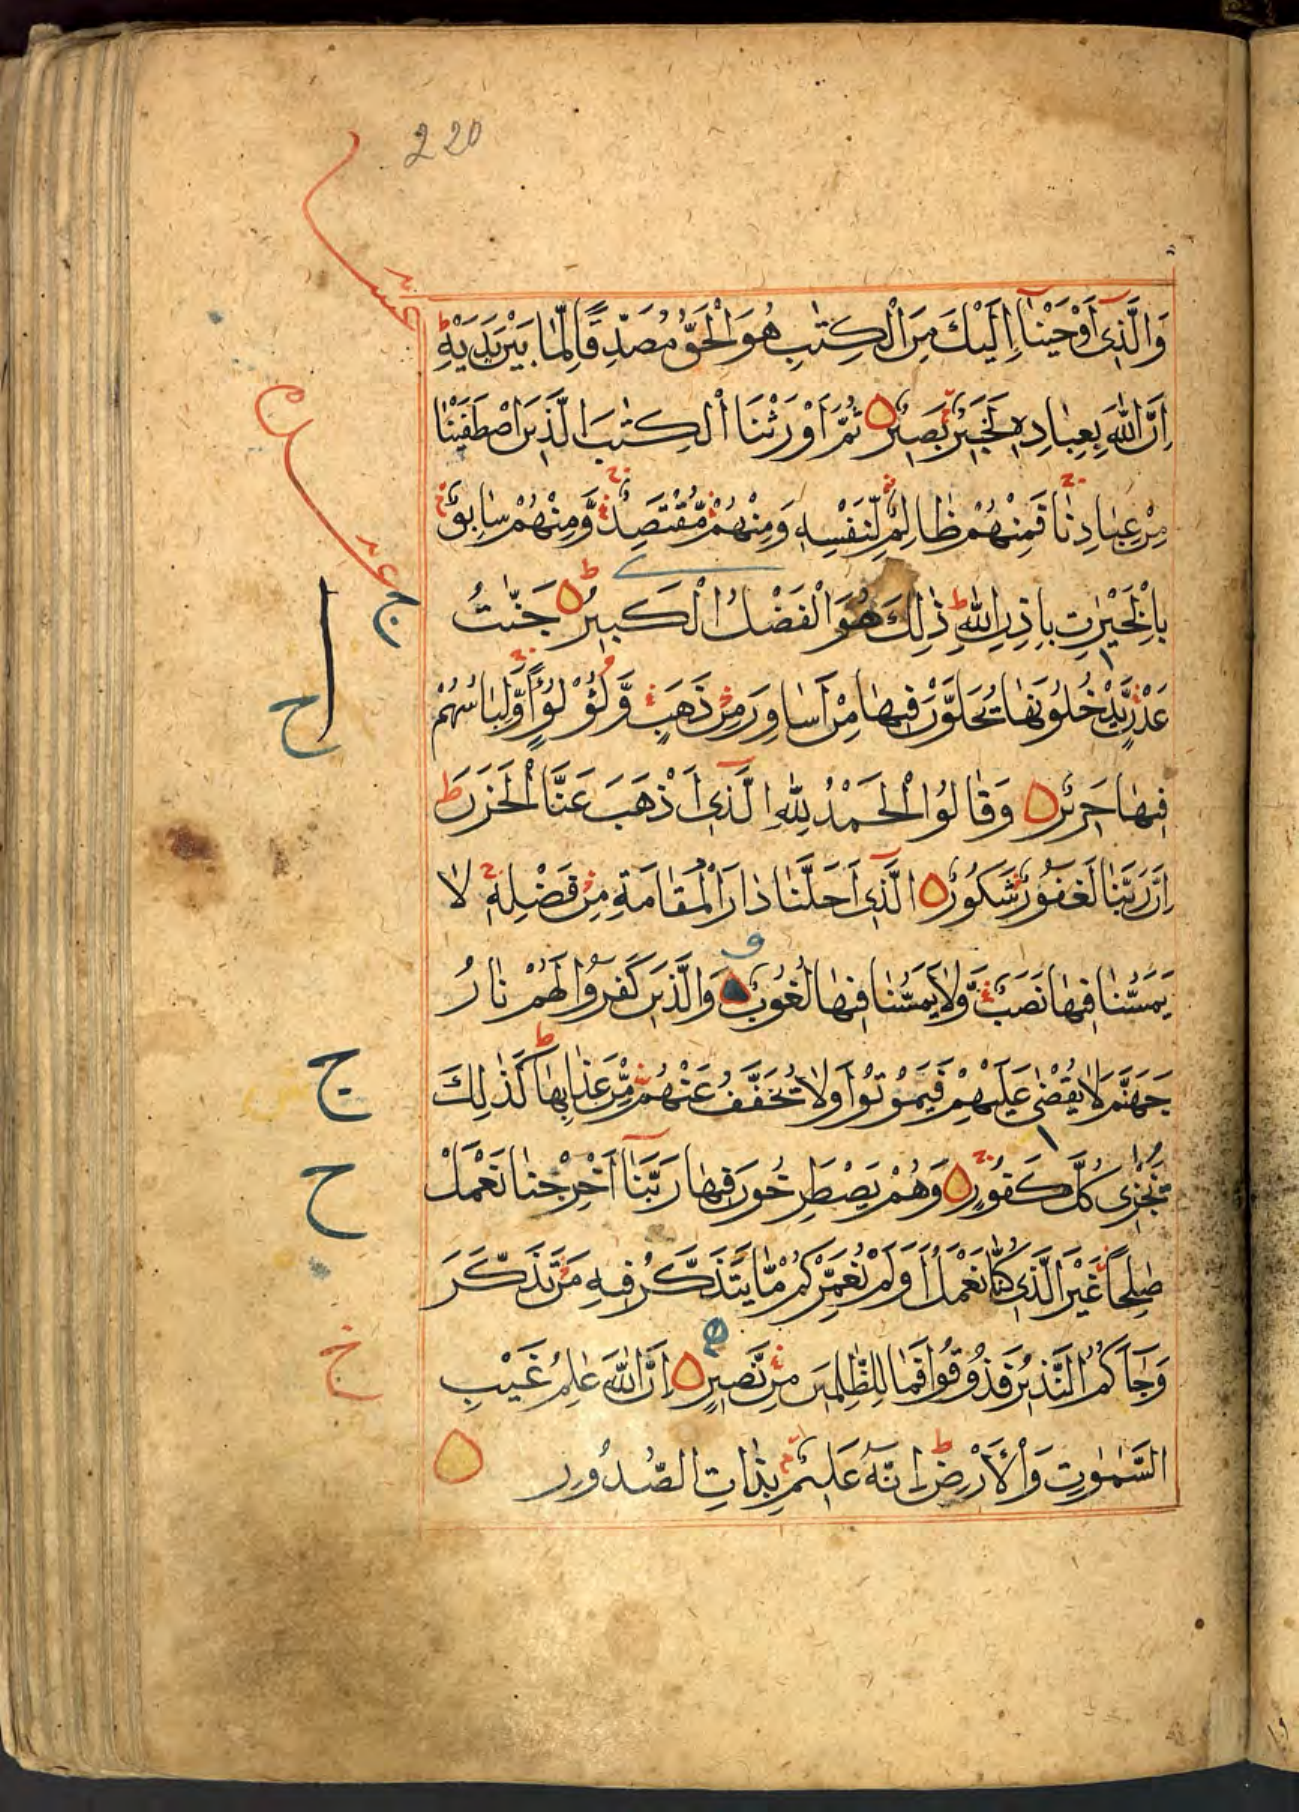 220
وَالَّذِى اَوْحَيْنَا اِلَيْكَ مِنَ الْكِتٰبِ هُوَ الْحَقُّ مُصَدِّقًا لِّمَا بَيْنَ يَدَيْهِ ط
اِنَّ اللّٰهَ بِعِبَادِهٖ لَخَبِيْرٌ بَصِيْرٌ ثُمَّ اَوْرَثْنَا الْكِتٰبَ الَّذِيْنَ اصْطَفَيْنَا
مِنْ عِبَادِنَا فَمِنْهُمْ ظَالِمٌ لِّنَفْسِهٖ وَمِنْهُمْ مُّقْتَصِدٌ وَّمِنْهُمْ سَابِقٌ
بِالْخَيْرٰتِ بِاِذْنِ اللّٰهِ ط ذٰلِكَ هُوَ الْفَضْلُ الْكَبِيْرُ ط جَنّٰتُ
عَدْنٍ يَّدْخُلُوْنَهَا يُحَلَّوْنَ فِيْهَا مِنْ اَسَاوِرَ مِنْ ذَهَبٍ وَّلُؤْلُؤًا وَّلِبَاسُهُمْ
فِيْهَا حَرِيْرٌ وَقَالُوا الْحَمْدُ لِلّٰهِ الَّذِى اَذْهَبَ عَنَّا الْحَزَنَ ط
اِنَّ رَبَّنَا لَغَفُوْرٌ شَكُوْرٌ الَّذِى اَحَلَّنَا دَارَ الْمُقَامَةِ مِنْ فَضْلِهٖ لَا
يَمَسُّنَا فِيْهَا نَصَبٌ وَّلَا يَمَسُّنَا فِيْهَا لُغُوْبٌ وَالَّذِيْنَ كَفَرُوْا لَهُمْ نَارُ
جَهَنَّمَ لَا يُقْضٰى عَلَيْهِمْ فَيَمُوْتُوْا وَلَا يُخَفَّفُ عَنْهُمْ مِّنْ عَذَابِهَا ط كَذٰلِكَ
نَجْزِى كُلَّ كَفُوْرٍ وَهُمْ يَصْطَرِخُوْنَ فِيْهَا رَبَّنَا اَخْرِجْنَا نَعْمَلْ
صٰلِحًا غَيْرَ الَّذِى كُنَّا نَعْمَلُ اَوَلَمْ نُعَمِّرْكُمْ مَّا يَتَذَكَّرُ فِيْهِ مَنْ تَذَكَّرَ
وَجَآءَكُمُ النَّذِيْرُ فَذُوْقُوْا فَمَا لِلظّٰلِمِيْنَ مِنْ نَّصِيْرٍ اِنَّ اللّٰهَ عٰلِمُ غَيْبِ
السَّمٰوٰتِ وَالْاَرْضِ ط اِنَّهٗ عَلِيْمٌ بِذَاتِ الصُّدُوْرِ
ج
ح
ج
ح
خ